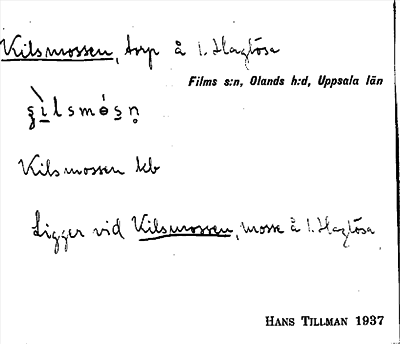 Kilsmossen, torp å 1. Hagtösa
Films s:n, Olands h:d, Uppsala län
Kilsmossen kb
Ligger vid Kilsmossen, mosse å 1. Hagtösa
HANS TILLMAN 1937